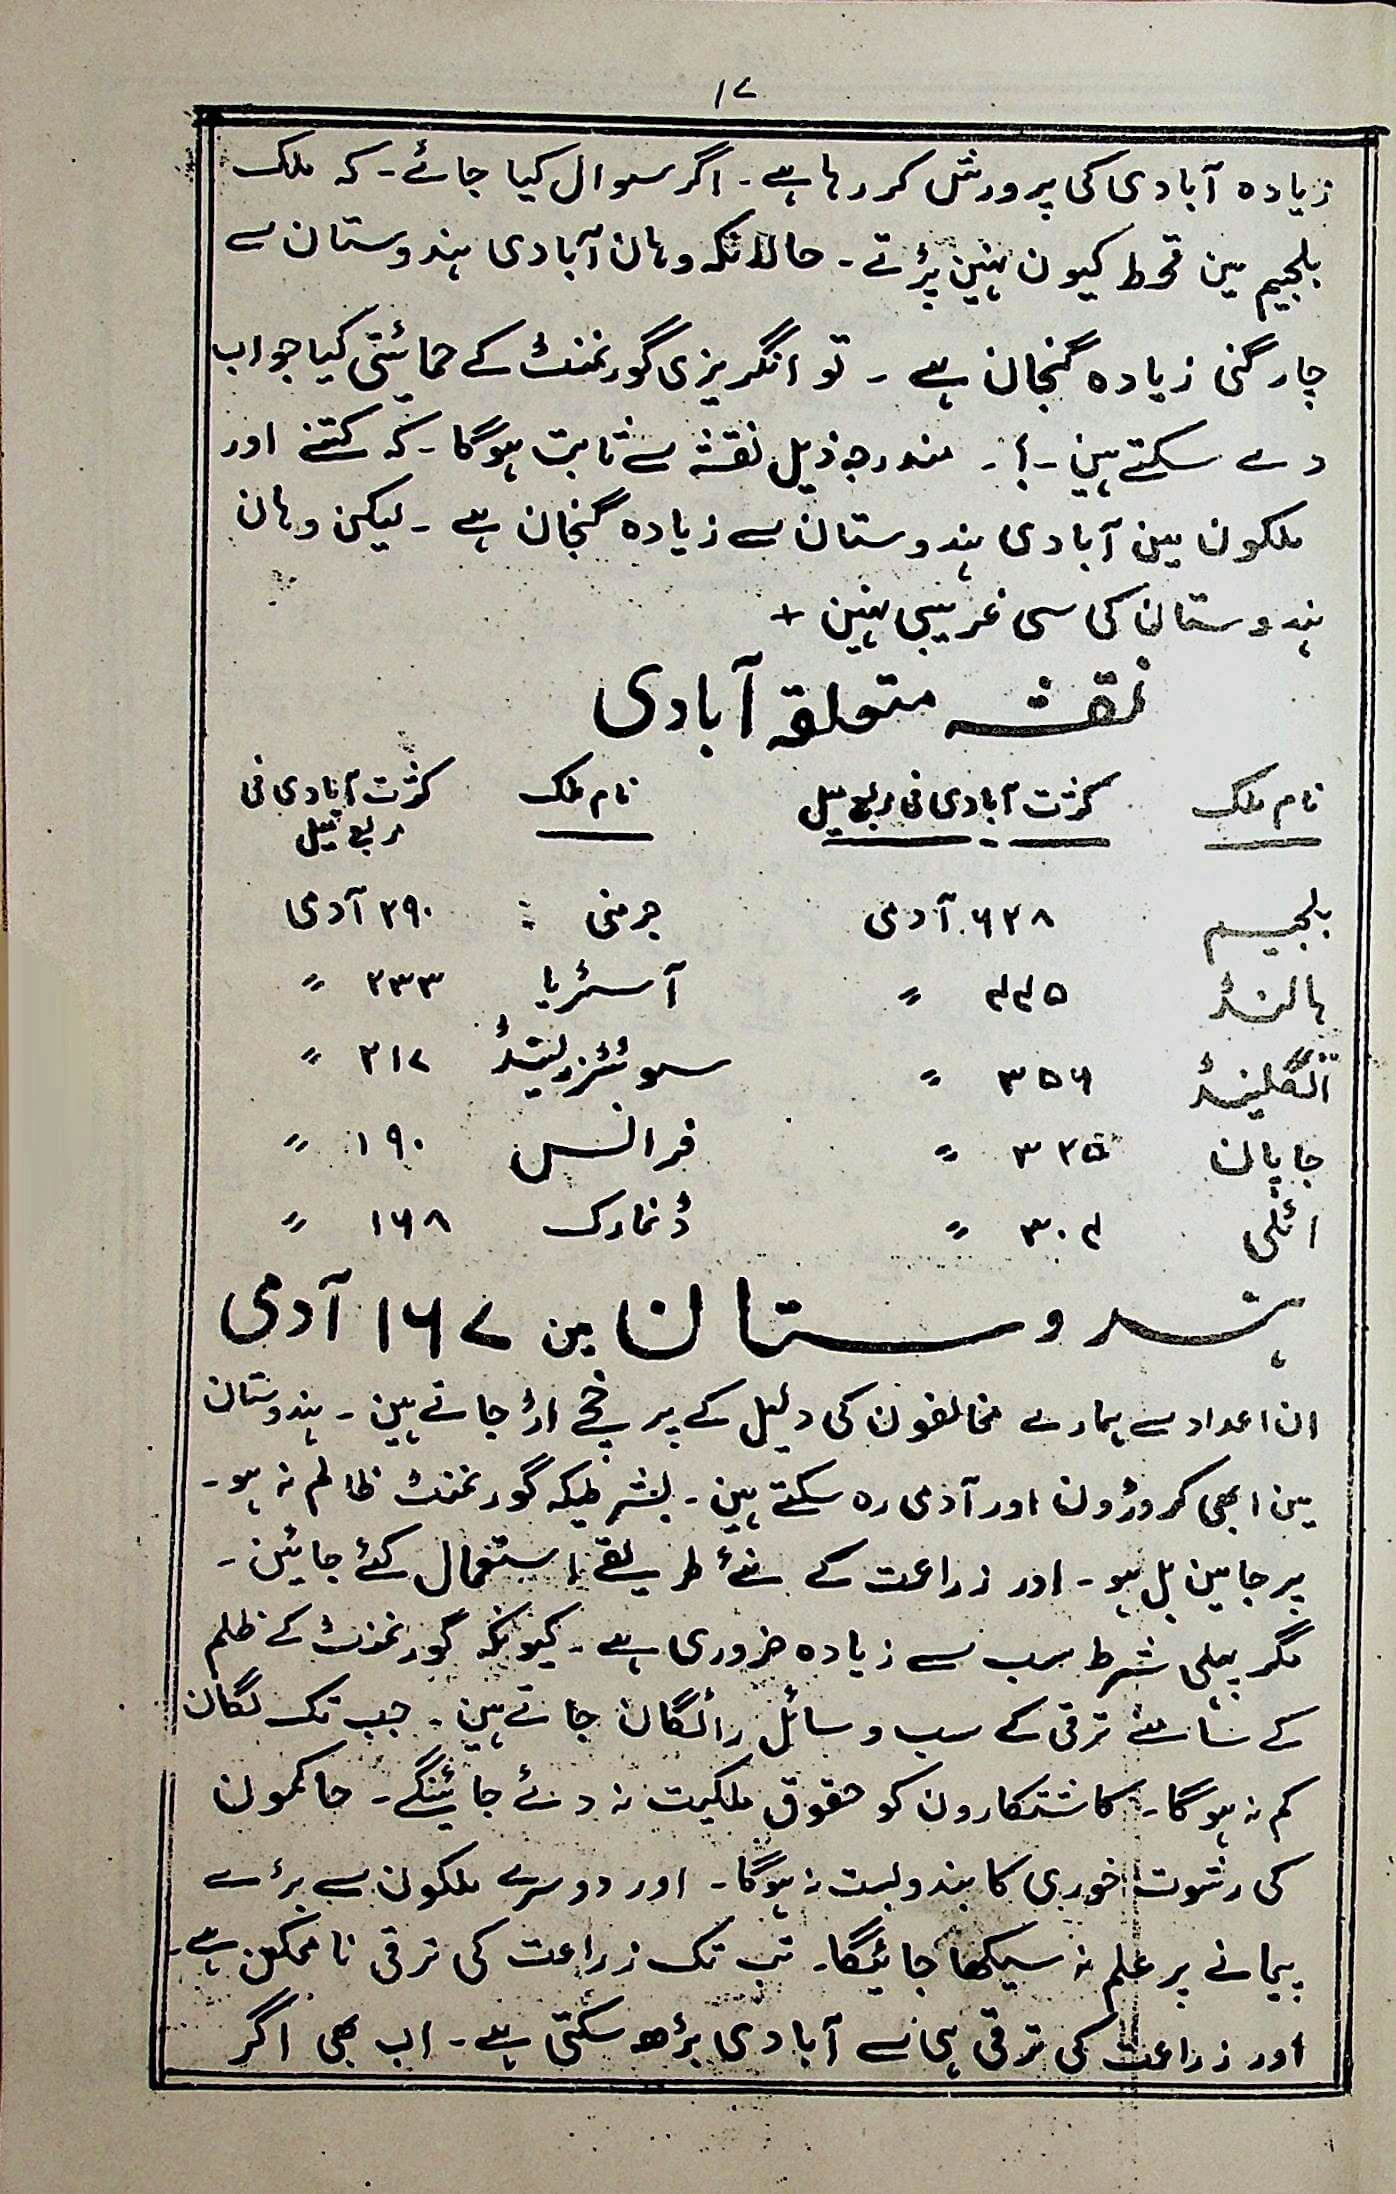 ۱۷
زیادہ آبادی کی پرورش کر رہا ہے ۔ اگر سوال کیا جائے ۔ کہ ملک
بلجیم مین قحط کیون نہین پڑتے ۔ حالانکہ وہان آبادی ہندوستان سے
چار گنی زیادہ گنجان ہے ۔ تو انگریزی گورنمنٹ کے حمائیتی کیا جواب
دے سکتے ہین ۔؟۔ مندرجہ ذیل نقشہ سے ثابت ہوگا ۔ کہ کتنے اور
ملکون مین آبادی ہندوستان سے زیادہ گنجان ہے ۔ لیکن وہان
ہندوستان کی سی غریبی نہین +
نقشہ متعلقہ آبادی
نام ملک کثرت آبادی فی مربع میل نام ملک کثرت آبادی فی
مربع میل
بلجیم ۶۲۸ آدمی جرمنی ۲۹۰ آدمی
ہالنڈ ۴۴۵ " آسٹریا ۲۳۳ "
انگلینڈ ۳۵۶ " سوئٹزرلینڈ ۲۱۷ "
جاپان ۳۲۵ " فرانس ۱۹۰ "
اٹلی ۳۰۴ " ڈنمارک ۱۶۸ "
ہندوستان مین ۱۶۷ آدمی
ان اعداد سے ہمارے مخالفون کی دلیل کے پرخچے اڑ جاتے ہین ۔ ہندوستان
مین ابھی کروڑون اور آدمی رہ سکتے ہین ۔ بشرطیکہ گورنمنٹ ظالم نہ ہو ۔
پرجا مین بل ہو ۔ اور زراعت کے نئے طریقے استعمال کئے جائین ۔
مگر پہلی شرط سب سے زیادہ ضروری ہے ۔ کیونکہ گورنمنٹ کے ظلم
کے سامنے ترقی کے سب وسائل رائگان جاتے ہین ۔ جب تک لگان
کم نہ ہوگا ۔ کاشتکارون کو حقوق ملکیت نہ دئے جائینگے ۔ حاکمون
کی رشوت خوری کا بندوبست نہ ہوگا ۔ اور دوسرے ملکون سے بڑے
پیمانے پر علم نہ سیکھا جائیگا ۔ تب تک زراعت کی ترقی ناممکن ہے ۔
اور زراعت کی ترقی ہی سے آبادی بڑھ سکتی ہے ۔ اب بھی اگر